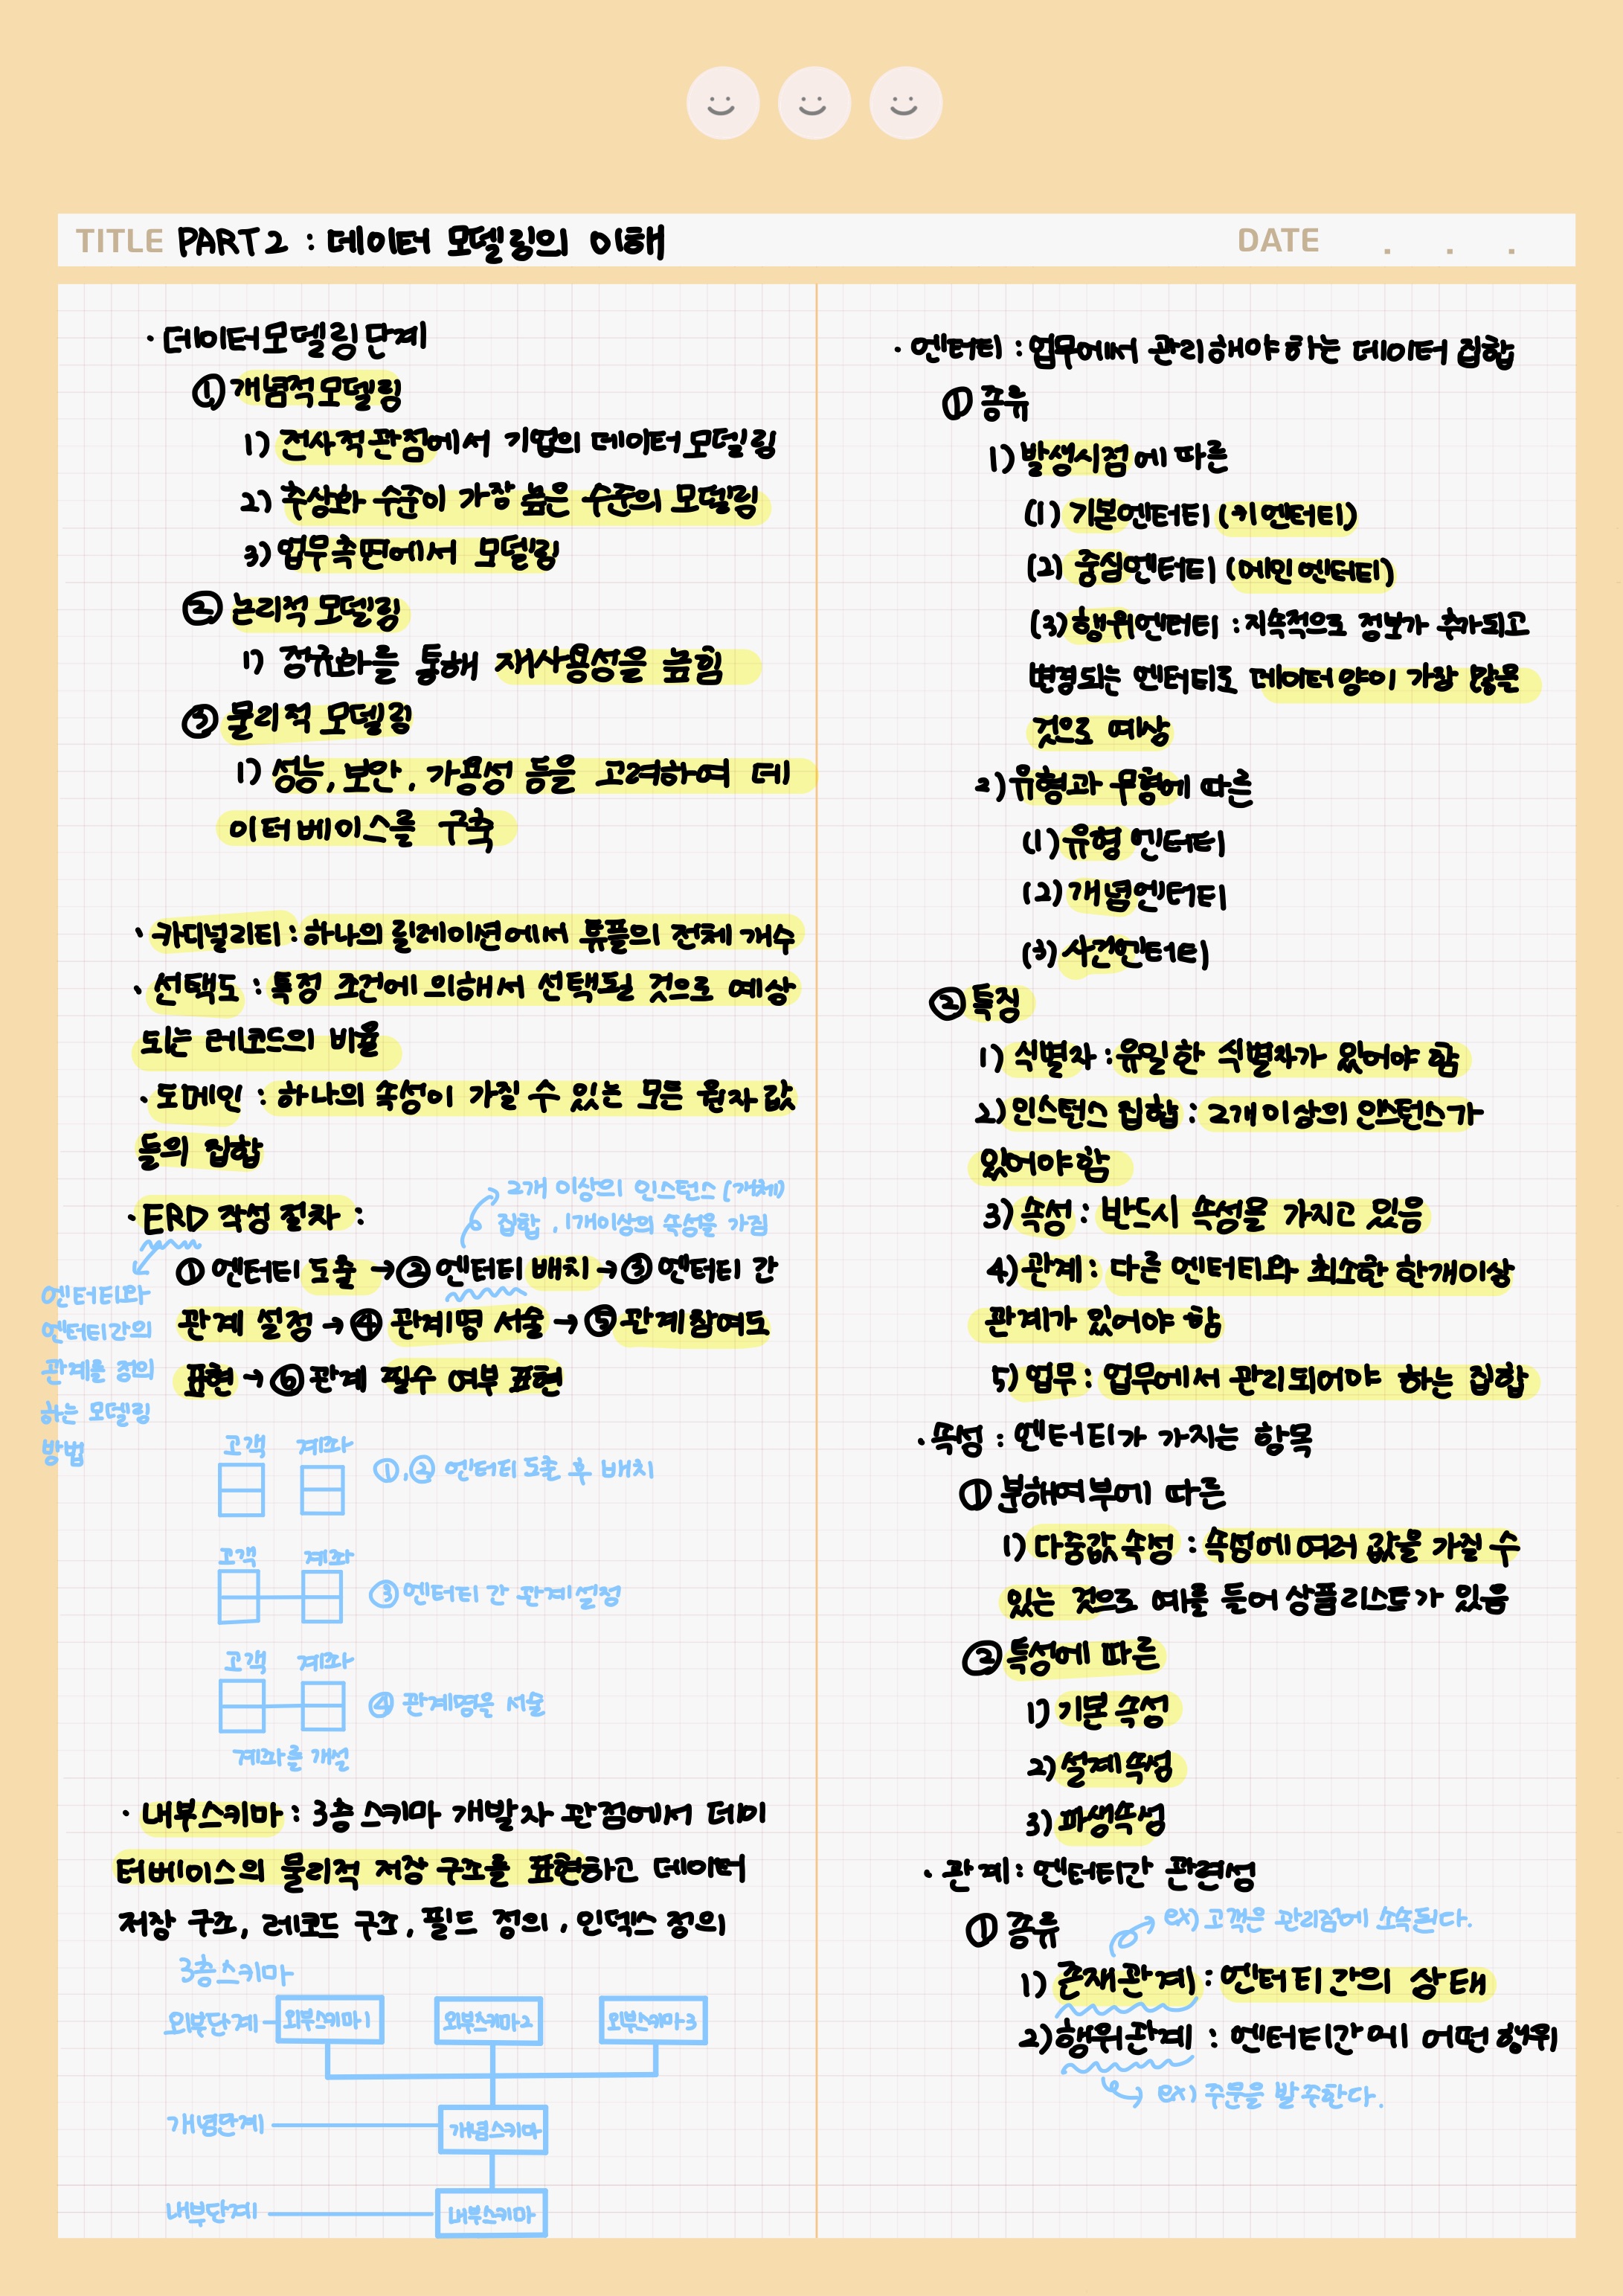 TITLE PART2 : 데이터 모델링의 이해
DATE . . .
· 데이터모델링단계
① 개념적모델링
1) 전사적관점에서 기업의 데이터모델링
2) 추상화 수준이 가장 높은 수준의 모델링
3) 업무측면에서 모델링
② 논리적모델링
1) 정규화를 통해 재사용성을 높힘
③ 물리적 모델링
1) 성능, 보안, 가용성 등을 고려하여 데
이터베이스를 구축
· 카디널리티 : 하나의 릴레이션에서 튜플의 전체 개수
· 선택도 : 특정 조건에 의해서 선택될 것으로 예상
되는 레코드의 비율
· 도메인 : 하나의 속성이 가질 수 있는 모든 원자값
들의 집합
2개 이상의 인스턴스 (개체)
집합, 1개이상의 속성을 가짐
· ERD 작성 절차 :
① 엔터티 도출 → ② 엔터티 배치 → ③ 엔터티 간
관계 설정 → ④ 관계명 서술 → ⑤ 관계참여도
표현 → ⑥ 관계 필수 여부 표현
엔터티와
엔터티간의
관계를 정의
하는 모델링
방법
고객 계좌
①,② 엔터티 도출 후 배치
고객 계좌
③ 엔터티 간 관계설정
고객 계좌
④ 관계명을 서술
계좌를 개설
· 내부스키마 : 3층 스키마 개발자 관점에서 데이
터베이스의 물리적 저장 구조를 표현하고 데이터
저장 구조, 레코드 구조, 필드 정의, 인덱스 정의
3층스키마
외부단계 외부스키마1 외부스키마2 외부스키마3
개념단계 개념스키마
내부단계 내부스키마
· 엔터티 : 업무에서 관리해야하는 데이터 집합
① 종류
1) 발생시점에 따른
(1) 기본엔터티 (키엔터티)
(2) 중심엔터티 (메인엔터티)
(3) 행위엔터티 : 지속적으로 정보가 추가되고
변경되는 엔터티로 데이터양이 가장 많은
것으로 예상
2) 유형과 무형에 따른
(1) 유형 엔터티
(2) 개념엔터티
(3) 사건엔터티
② 특징
1) 식별자 : 유일한 식별자가 있어야 함
2) 인스턴스 집합 : 2개이상의 인스턴스가
있어야함
3) 속성 : 반드시 속성을 가지고 있음
4) 관계 : 다른 엔터티와 최소한 한개이상
관계가 있어야 함
5) 업무 : 업무에서 관리되어야 하는 집합
· 속성 : 엔터티가 가지는 항목
① 분해여부에 따른
1) 다중값 속성 : 속성에 여러 값을 가질 수
있는 것으로 예를 들어 상품리스트가 있음
② 특성에 따른
1) 기본 속성
2) 설계속성
3) 파생속성
· 관계 : 엔터티간 관련성
① 종류
ex) 고객은 관리점에 소속된다.
1) 존재관계 : 엔터티간의 상태
2) 행위관계 : 엔터티간에 어떤 행위
ex) 주문을 발주한다.